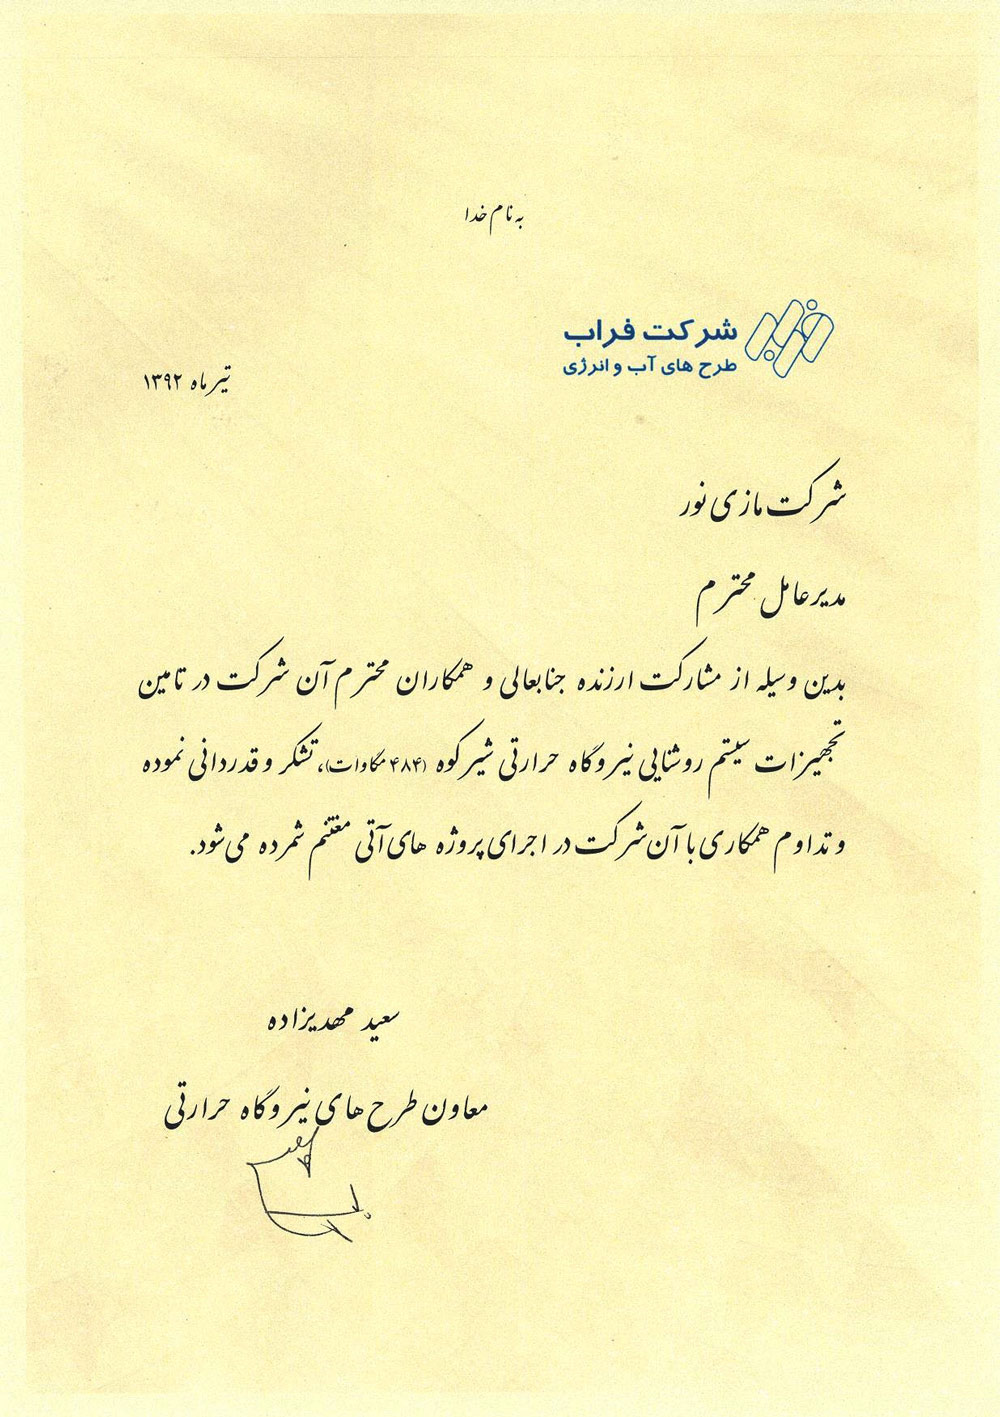 به نام خدا
شرکت فراب
طرح های آب و انرژی
تیر ماه ۱۳۹۲
شرکت مازی نور
مدیرعامل محترم
بدین وسیله از مشارکت ارزنده جنابعالی و همکاران محترم آن شرکت در تامین
تجهیزات سیستم روشنایی نیروگاه حرارتی شیرکوه (۴۸۴ مگاوات)، تشکر و قدردانی نموده
و تداوم همکاری با آن شرکت در اجرای پروژه های آتی مغتنم شمرده می‌شود.
سعید مهدیزاده
معاون طرح های نیروگاه حرارتی